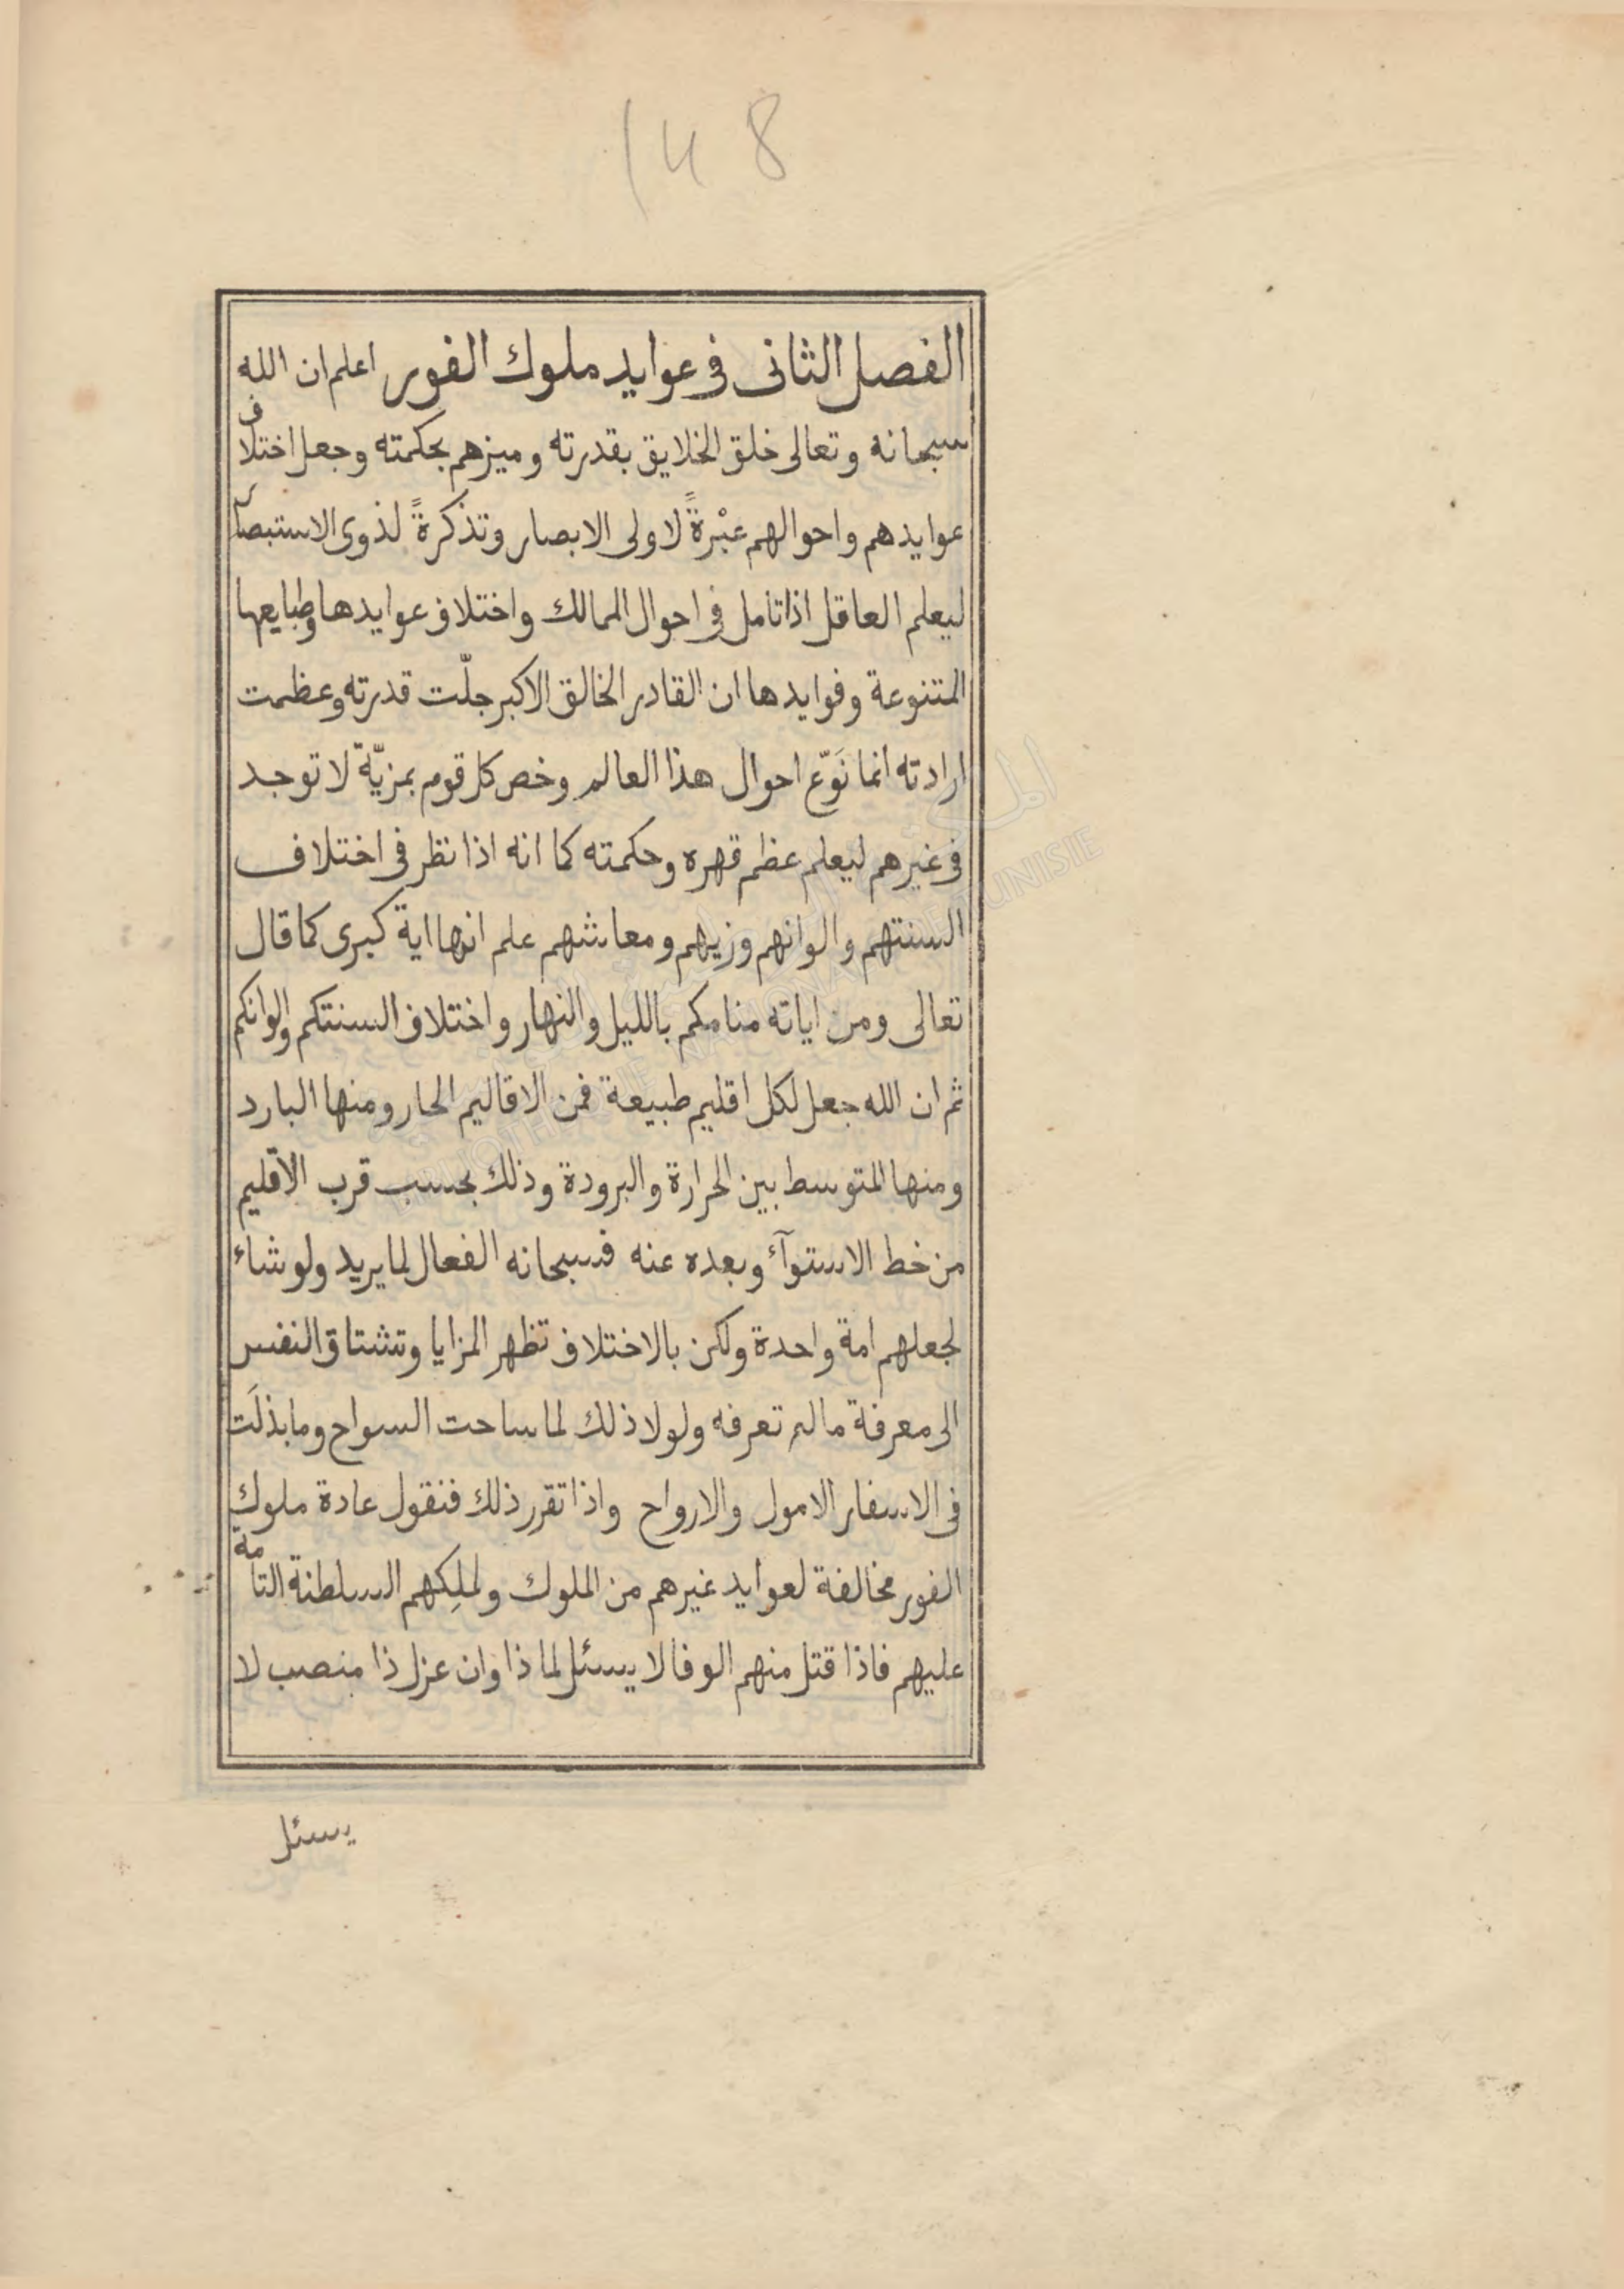 148
الفصل الثانى فى عوايد ملوك الفور اعلم ان الله
سبحانه وتعالى خلق الخلايق بقدرته وميزهم بحكمته وجعل اختلاف
عوايدهم واحوالهم عبْرةً لاولى الابصار وتذكرةً لذوى الاستبصار
ليعلم العاقل اذا تامل فى احوال الممالك واختلاف عوايدها وطبايعها
المتنوعة وفوايدها ان القادر الخالق الاكبر جلّت قدرته وعظمت
ارادته انما نَوّع احوال هذا العالم وخص كل قوم بمزيّة لا توجد
فى غيرهم ليعلم عظم قهره وحكمته كما انه اذا نظر فى اختلاف
السنتهم والوانهم وزيهم ومعاشهم علم انها اية كبرى كما قال
تعالى ومن اياته منامكم بالليل والنهار واختلاف السنتكم والوانكم
ثم ان الله جعل لكل اقليم طبيعة فمن الاقاليم الحار ومنها البارد
ومنها المتوسط بين الحرارة والبرودة وذلك بحسب قرب الاقليم
من خط الاستوآء وبعده عنه فسبحانه الفعال لما يريد ولو شاء
لجعلهم امة واحدة ولكن بالاختلاف تظهر المزايا وتشتاق النفس
الى معرفة ما لم تعرفه ولولا ذلك لما ساحت السواح وما بذلَت
فى الاسفار الامول والارواح واذا تقرر ذلك فنقول عادة ملوك
الفور مخالفة لعوايد غيرهم من الملوك ولملِكهم السلطنة التامة
عليهم فاذا قتل منهم الوفا لا يسئل لماذا وان عزل ذا منصب لا
يسئل